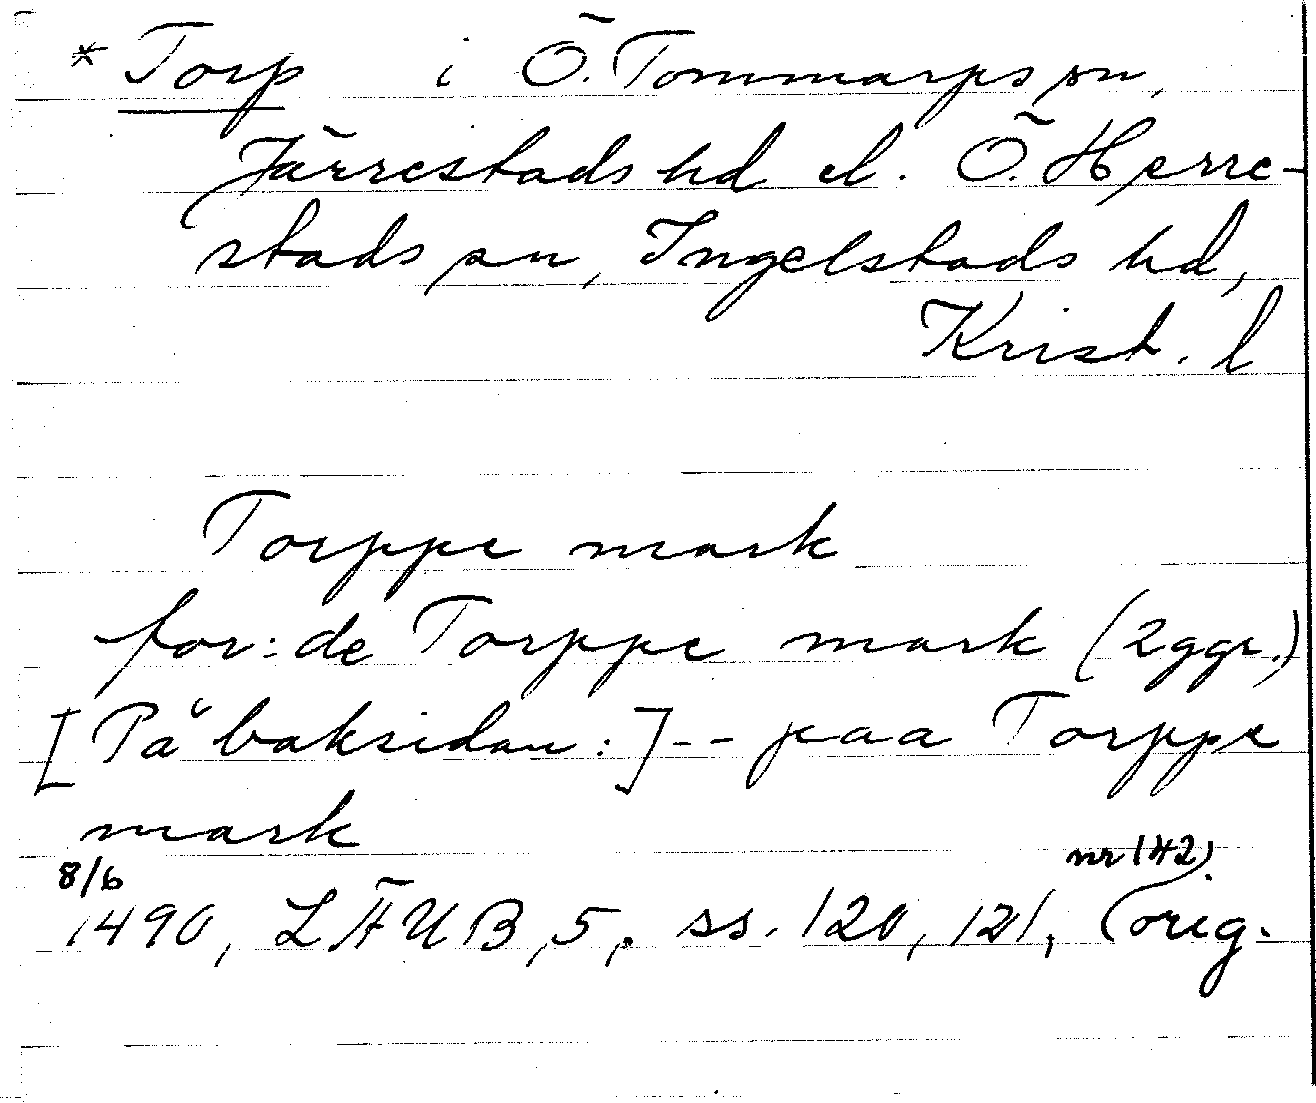 * Torp i Ö. Tommarps sn,
Järrestads hd el. Ö. Herre-
stads sn, Ingelstads hd,
Krist. l
Torppe mark
for:de Torppe mark (2 ggr.)
[På baksidan:] -- paa Torppe
mark
8/6 nr 142)
1490, LÄUB, 5, ss. 120, 121, (orig.